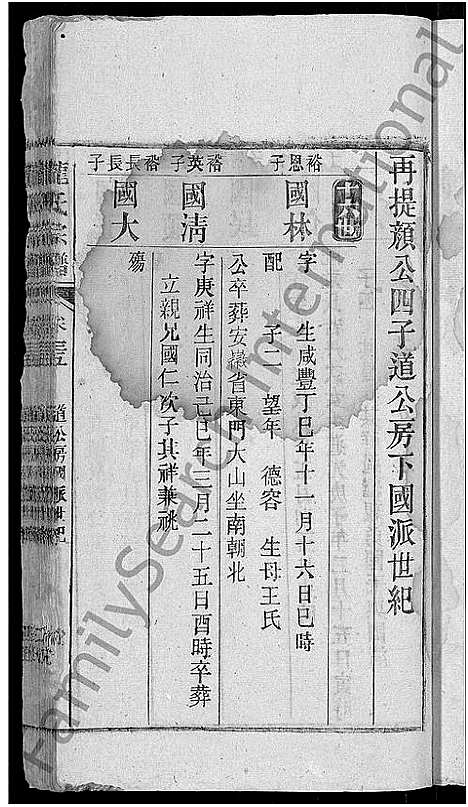 再提顏公四子道公房下國派世紀
裕恩子
國林
字 生咸豐丁巳年十一月十六日巳時
配 子二 望年 德容 生母王氏
公卒葬安徽省東門大山坐南朝北
裕英子
國清
字庚祥生同治己巳年三月二十五日酉時卒葬
立親兄國仁次子其祥兼祧
裕長長子
國大
殤
龍氏宗譜
道公房國派世紀
FamilySearch International